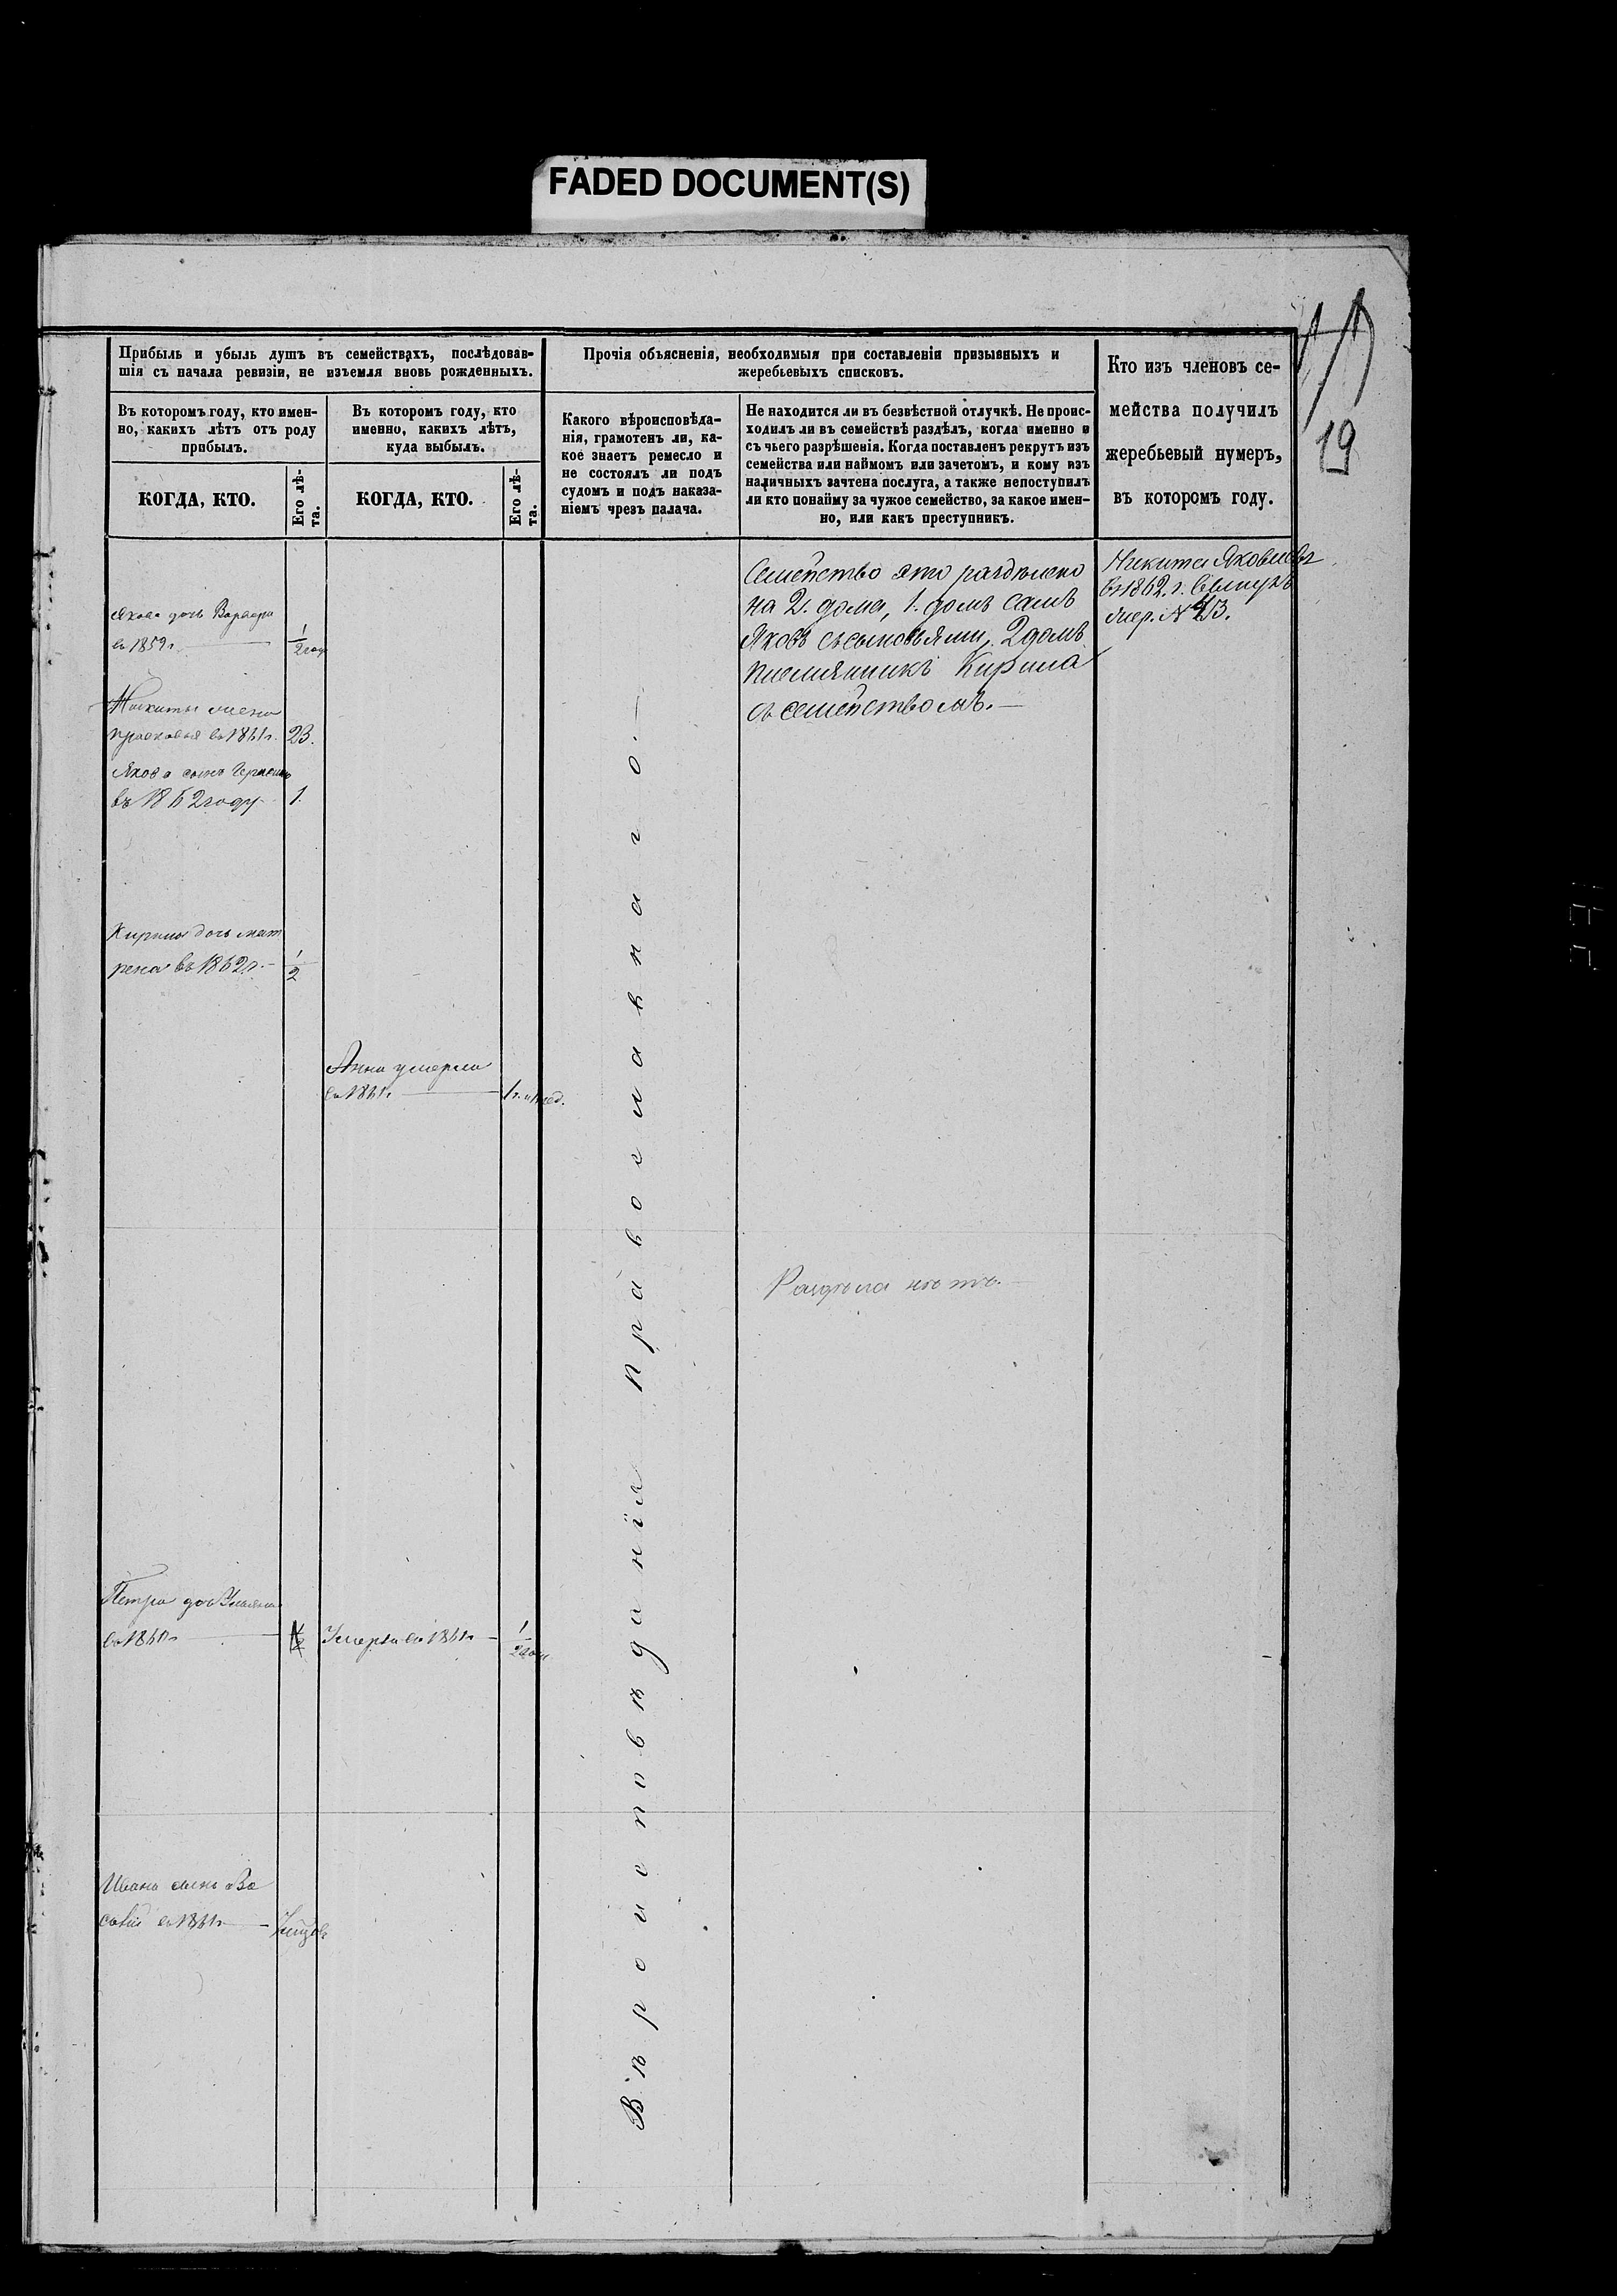 FADED DOCUMENT(S)
19
Прибыль и убыль душъ въ семействахъ, послѣдовав-
шія съ начала ревизіи, не изъемля вновь рожденныхъ.
Прочія объясненія, необходимыя при составленіи призывныхъ и
жеребьевыхъ списковъ.
Кто изъ членовъ се-
мейства получилъ
жеребьевый нумеръ,
въ которомъ году.
Въ которомъ году, кто имен-
но, какихъ лѣтъ отъ роду
прибылъ.
Въ которомъ году, кто
именно, какихъ лѣтъ,
куда выбылъ.
Какого вѣроисповѣда-
нія, грамотенъ ли, ка-
кое знаетъ ремесло и
не состоялъ ли подъ
судомъ и подъ наказа-
ніемъ чрезъ палача.
Не находится ли въ безвѣстной отлучкѣ. Не проис-
ходилъ ли въ семействѣ раздѣлъ, когда именно и
съ чьего разрѣшенія. Когда поставленъ рекрутъ изъ
семейства или наймомъ или зачетомъ, и кому изъ
наличныхъ зачтена послуга, а также непоступилъ
ли кто понайму за чужое семейство, за какое имен-
но, или какъ преступникъ.
КОГДА, КТО.
Его лѣ-
та.
КОГДА, КТО.
Его лѣ-
та.
Якова дочь Варвара
въ 1859г. 1/2 год
Никиты жена
Прасковья въ 1861г. 23.
Якова сынъ Герасимъ
въ 1862 году 1.
Кирилы дочь Мат
рена въ 1862г. 1/2
Анна умерла
въ 1861г.
Петра дочь
въ 1861г. 1/2 Умерла въ 1861г. 1/2 года
Ивана сынъ Ва
силій въ 1861г.
Вѣроисповѣданія Православнаго.
Семейство это раздѣлено
на 2. дома, 1. домъ самъ
Яковъ съ сыновьями, 2 домъ
племянникъ Кирила
съ семействомъ.
Раздѣла нѣтъ.
Никита Яковлевъ
въ 1862. г.
жер. №